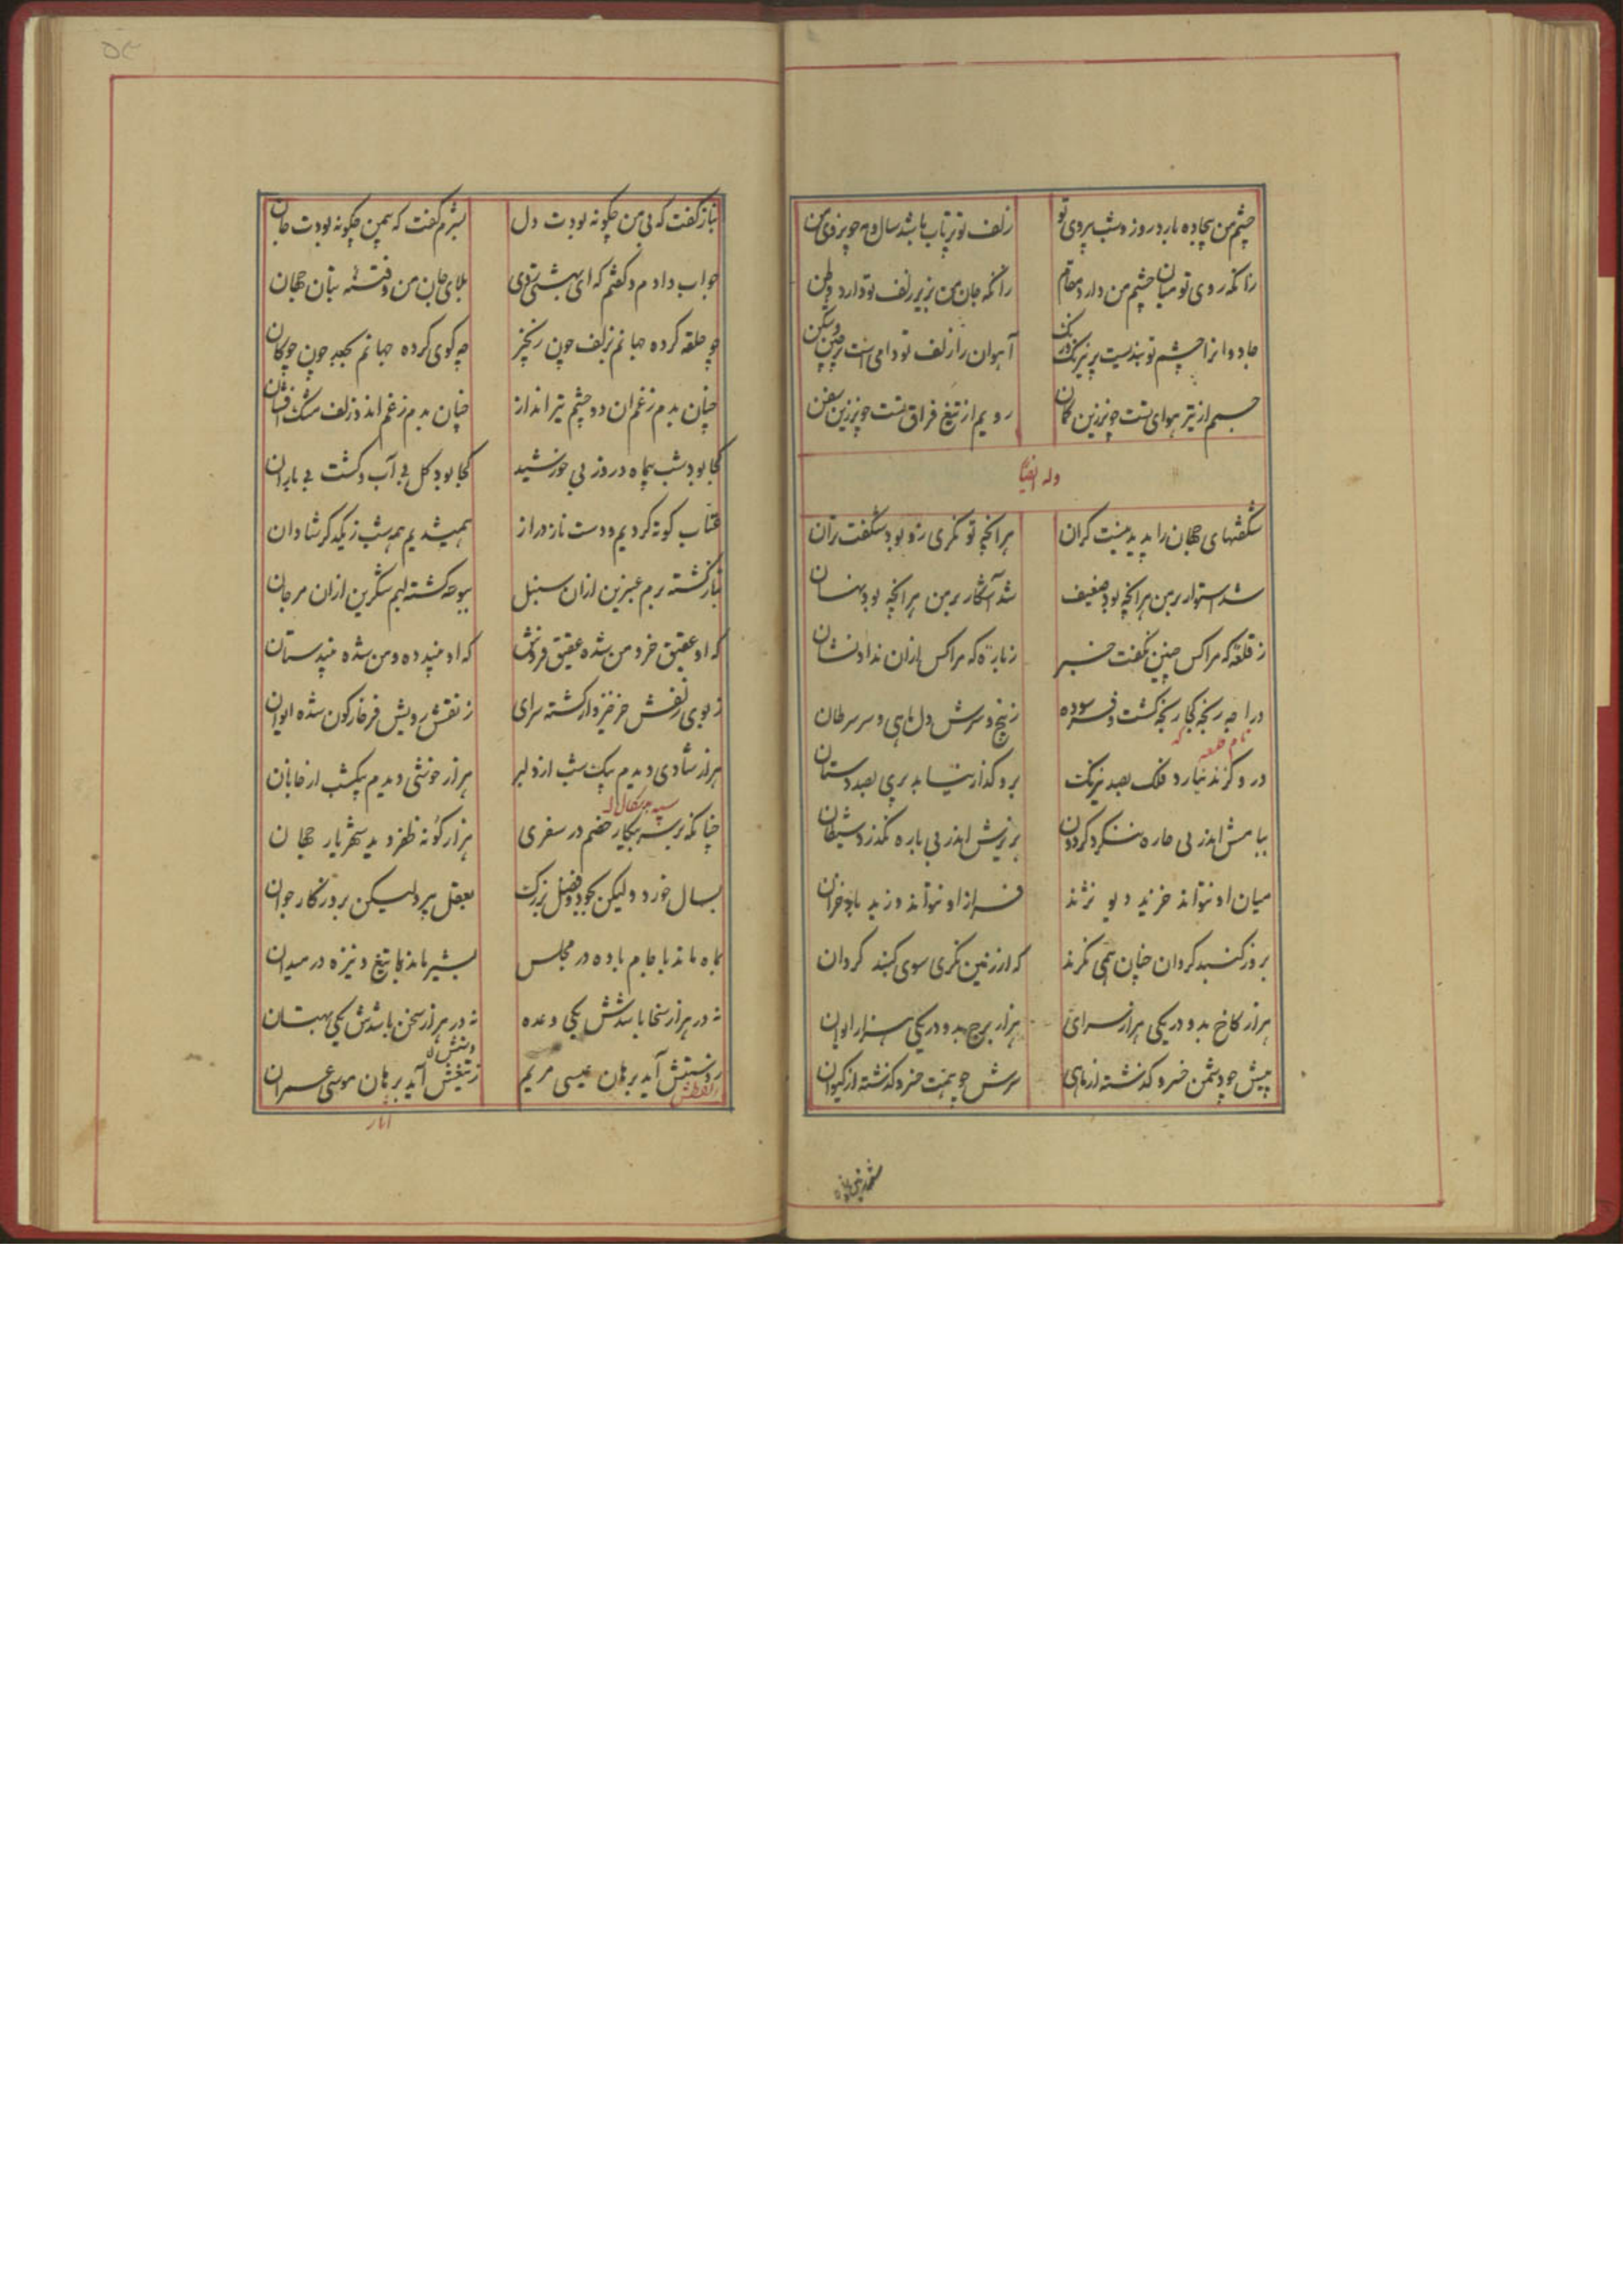 چشم من بیجاده بارد روز و شب بر روی تو
زلف تو پرتاب باشد سال و مه چون روی من
زانکه روی تو میان چشم من دارد مقام
زانکه جان من بزیر زلف تو دارد وطن
جادوانرا چشم تو بندیست پر نیرنگ و رنگ
آهوان را زلف تو دامی است پر چین و شکن
جسمم از تیر هوای تست چون زرین کمان
رویم از تیغ فراق تست چون زرین سفن
وله ایضا
شگفتهای جهان را پدید نیست کران
هر آنچه تو نگری زو بود شگفت تر آن
شد استوار بر من هر آنچه بود ضعیف
شد آشکار بر من هر آنچه بود نهان
ز قلعه که مرا کس چنین نگفت خبر
ز باره که مرا کس از آن نداد نشان
زبیخ و سرش دل ماهی و سر سرطان
نام قلعه
درو گزند نیارد فلک بصد نیرنگ
برو گذار نیابد پری بصد دستان
ببامش اندر بی چاره ننگرد گردون
بزیرش اندر بی باره نگذرد شیطان
میان او نتواند خزید دیو نژند
فراز او نتواند وزید باد خزان
بروز گنبد گردان چنان همی نگرند
که از زمین نگری سوی گنبد گردان
هزار کاخ بدو در یکی هزار سرای
هزار برج بدو در یکی هزار ایوان
پیش چو دشمن خسرو گذشته از ماهی
سرش چو همت خسرو گذشته از کیوان
۵۴
بناز گفت که بی من چگونه بودت دل
بشرم گفت که بیمن چگونه بودت جان
جواب دادم و گفتم که ای بهشتی روی
بلای جان من و فتنه بتان جهان
چو حلقه کرده جهانم بزلف چون زنجیر
چو گوی کرده جهانم بجعد چون چوگان
چنان بدم ز غم آن دو چشم تیرانداز
چنان بدم ز غم آن دو زلف مشک افشان
کجا بود شب بیماه و روز بی خورشید
کجا بود گل بی آب و کشت بی باران
عتاب کوته کردیم و دست ناز دراز
همی شدیم همه شب ز یکدگر شادان
بناز گشته برم عنبرین از آن سنبل
ببوسه گشته لبم شکرین از آن مرجان
که او عقیق خر و من شده عقیق فروش
که او نبید ده و من شده نبیدستان
ز بوی زلفش خرخیزوار گشته سرای
ز نقش رویش فرخارگون شده ایوان
هزار شادی دیدم بیک شب از دلبر
هزار خوشی دیدم بیکشب از جانان
چنانکه بر سر پیکار خصم در سفری
هزار گونه ظفر دید شهریار جهان
بسال خورد ولیکن بجود و فضل بزرگ
بعقل پیر ولیکن بروزگار جوان
بماه ماند با جام باده در مجلس
بشیر ماند با تیغ و نیزه در میدان
نه در هزار سخا باشدش یکی وعده
نه در هزار سخن باشدش یکی بهتان
ز دستش آید برهان عیسی مریم
ز تیغش آید برهان موسی عمران